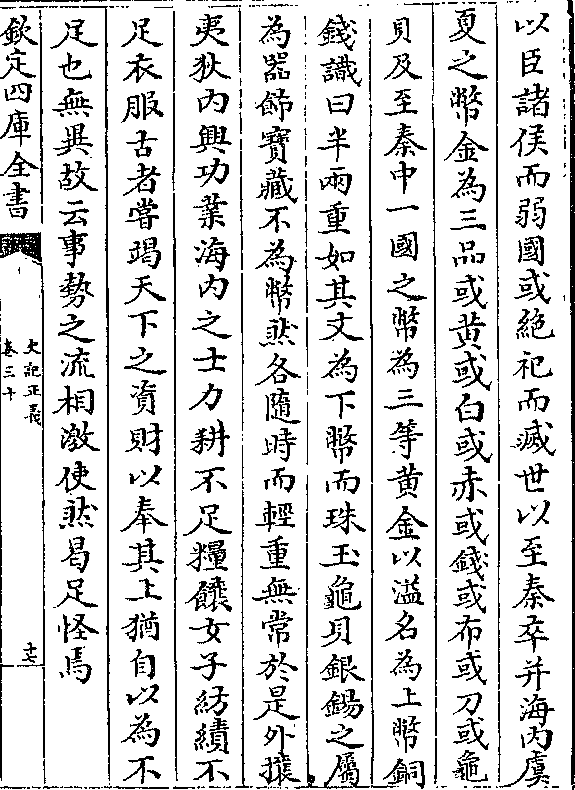 以臣諸侯而弱國或絶祀而滅世以至秦卒并海内虞
夏之幣金為三品或黄或白或赤或錢或布或刀或龜
貝及至秦中一國之幣為三等黄金以溢名為上幣銅
錢識曰半兩重如其文為下幣而珠玉龜貝銀錫之屬
為器飾寶藏不為幣然各隨時而輕重無常於是外攘
夷狄内興功業海内之士力耕不足糧饟女子紡績不
足衣服古者嘗竭天下之資財以奉其上猶自以為不
足也無異故云事勢之流相激使然曷足怪焉
欽定四庫全書
史記正義
卷三十
十七